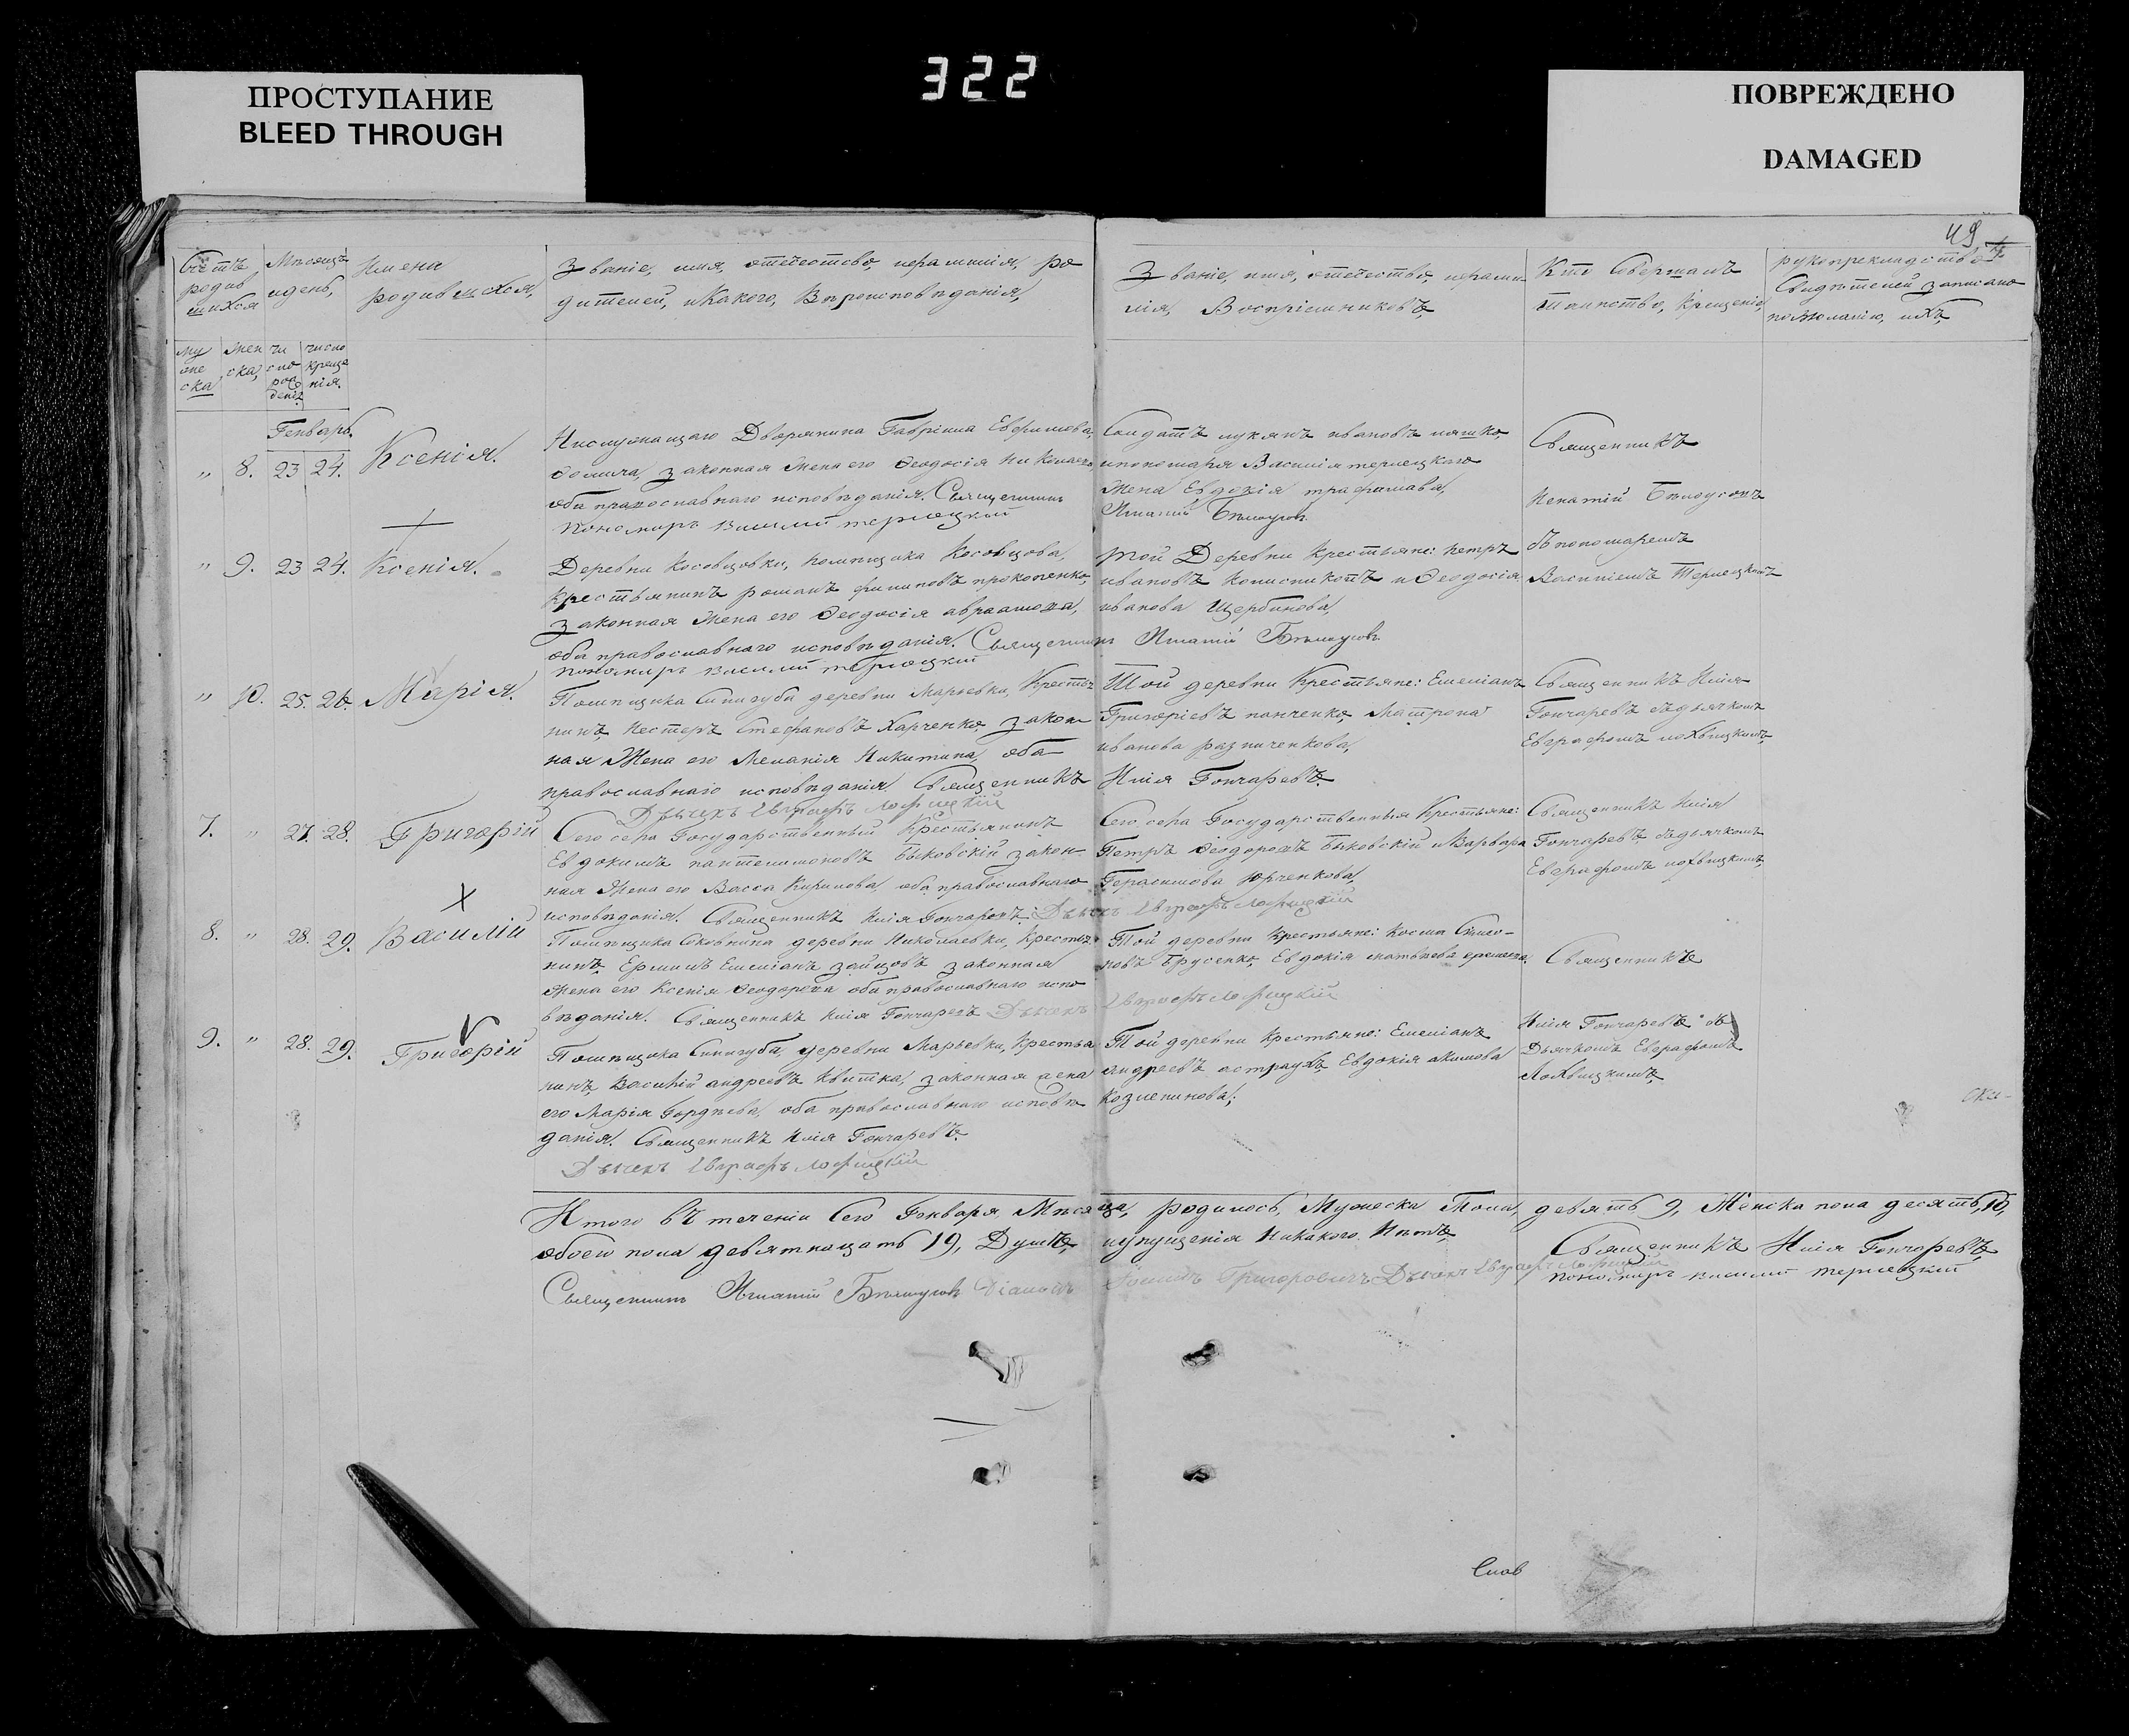 322
ПРОСТУПАНИЕ
BLEED THROUGH
ПОВРЕЖДЕНО
DAMAGED
49
Счетъ родив шихся
Мѣсяцъ и день,
Имена родившихся,
Званіе, имя, отечество, и фамилія, ро
дителей, и какого, вѣроисповѣданія,
Званіе, имя, отечество, и фами
лія, Воспріемниковъ,
Кто Совершалъ
таинство, Крещенія,
рукоприкладство
Свидѣтелей записано
по желанію, ихъ,
му же ска
жен ска,
чи сло рож деніе
число креще нія.
Генварь.
„ 8. 23 24. Ксенія.
Дворянина Гавріила
законная жена его Феодосія
оба православнаго исповѣданія. Священникъ
пономарь василий терлецкий
Солдатъ лукянъ ивановъ
и пономаря Василія терлецкаго
жена Евдокія
Игнатій Бѣлоусовъ
Священникъ
Игнатій Бѣлоусовъ
съ пономаремъ
Василіемъ Терлецкимъ
„ 9. 23 24. Ксенія.
Деревни Косовцовки, помѣщика Косовцова
крестьянинъ романъ филиповъ прокопенко,
законная жена его Феодосія авраамова,
оба православнаго исповѣданія. Священникъ
пономарь василий терлецкий
той Деревни крестьяне: петръ
ивановъ и Феодосія
иванова Щербинова,
Игнатій Бѣлоусовъ
„ 10. 25. 26. Марія.
Помѣщика Синигуба деревни Марьевки, Крестья
нинъ, Нестеръ Стефановъ Харченко, закон
ная Жена его Меланія Никитина, оба
православнаго исповѣданія. Священникъ
Дьячекъ Евграфъ Лохвицкій
Той деревни Крестьяне: Емеліанъ
Григоріевъ панченко, Матрона
иванова
Илія Гончаревъ.
Священникъ Илія
Гончаревъ съ дьячкомъ
Евграфомъ лохвицкимъ,
7. „ 27. 28. Григорій
Сего села Государственный Крестьянинъ
Евдокимъ пантелимоновъ Быковскій закон
ная Жена его Васса Кирилова оба православнаго
исповѣданія. Священникъ Илія Гончаревъ. Дьячекъ Евграфъ Лохвицкій
Сего села Государственныя Крестьяне:
Петръ Феодоровъ Быковскій и Варвара
Герасимова Юрченкова,
Священникъ Илія
Гончаревъ съ дьячкомъ
Евграфомъ лохвицкимъ,
8. „ 28. 29. Василій
Помѣщика деревни Николаевки, крестья
нинъ, Емеліанъ зайцовъ законная
жена его Ксенія Феодорова оба православнаго испо
вѣданія. Священникъ Илія Гончаревъ Дьячекъ Евграфъ Лохвицкій
Той деревни крестьяне: Косма Симо-
новъ Брусенко, Евдокія
Священникъ
9. „ 28. 29. Григорій
Помѣщика Синигуба, деревни Марьевки, крестья
нинъ, Василій андреевъ Квитка, законная жена
его Марія Гордѣева, оба православнаго исповѣ
данія. Священникъ Илія Гончаревъ.
Дьячекъ Евграфъ Лохвицкій
Той деревни крестьяне: Емеліанъ
андреевъ Евдокія акимова
Илія Гончаревъ съ
Дьячкомъ Евграфомъ
Лохвицкимъ,
Итого въ теченіи Сего Генваря Мѣсяца, родилось, Мужеска Пола, девять 9, Женска пола десять, 10,
обоего пола девятнацать 19, Душъ, и упущенія Никакого Нѣтъ,
Священникъ Илія Гончаревъ
Священникъ Игнатій Бѣлоусовъ Діаконъ Григоровичъ Дьячекъ Евграфъ Лохвицкій пономарь василий терлецкий